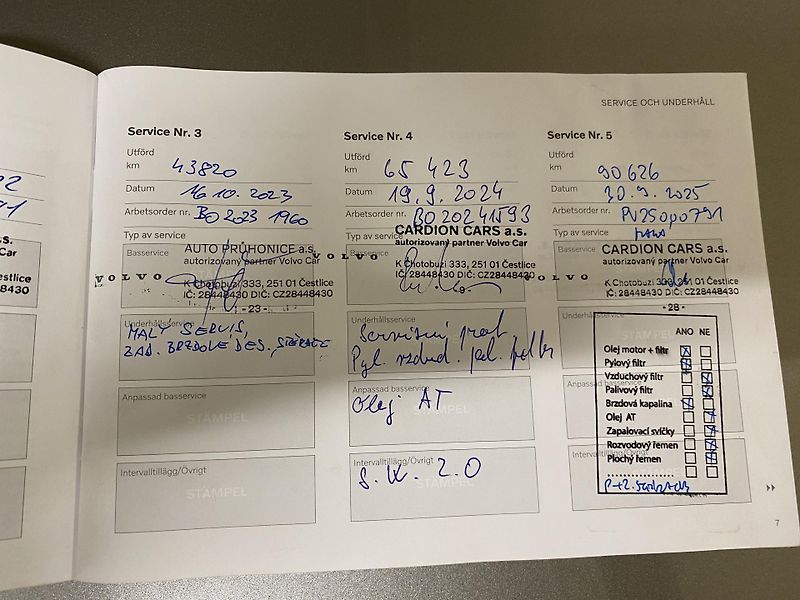 SERVICE OCH UNDERHÅLL
Service Nr. 3
Utförd
km 43820
Datum 16 10. 2023
Arbetsorder nr. BO 2023 1960
Typ av service
AUTO PRŮHONICE a.s.
Basservice autorizovaný partner Volvo Car
VOLVO
K Chotobuzi 333, 251 01 Čestlice
IČ: 28448430 DIČ: CZ28448430
- 23 -
Underhållsservice
MALÝ SERVIS,
ZAD. BRZDOVÉ DES.,
Anpassad basservice
STÄMPEL
Intervalltillägg/Övrigt
STÄMPEL
Service Nr. 4
Utförd
km 65 423
Datum 19. 9. 2024
Arbetsorder nr. BO20241593
Typ av service
CARDION CARS a.s.
autorizovaný partner Volvo Car
Basservice
VOLVO
K Chotobuzi 333, 251 01 Čestlice
IČ: 28448430 DIČ: CZ28448430
Underhållsservice
Servisní
Pyl. vzduch.
Anpassad basservice
Olej AT
STÄMPEL
Intervalltillägg/Övrigt
S. K. 2.0
STÄMPEL
Service Nr. 5
Utförd
km 90626
Datum 30. 9. 2025
Arbetsorder nr.
Typ av service
CARDION CARS a.s.
Basservice autorizovaný partner Volvo Car
VOLVO
K Chotobuzi 333, 251 01 Čestlice
IČ: 28448430 DIČ: CZ28448430
- 28 -
ANO NE
Olej motor + filtr
Pylový filtr
Vzduchový filtr
Palivový filtr
Brzdová kapalina
Olej AT
Zapalovací svíčky
Rozvodový řemen
Plochý řemen
7